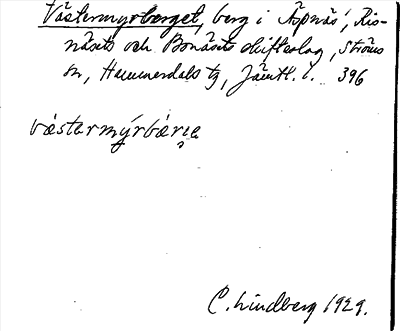 Västermyrberget, berg i Äspnäs, Ris-
näsets och Bonäsets skifteslag, Ströms
sn, Hammerdals tg, Jämtl. l. 396
vástermýrbárıe
C. Lindberg 1929.